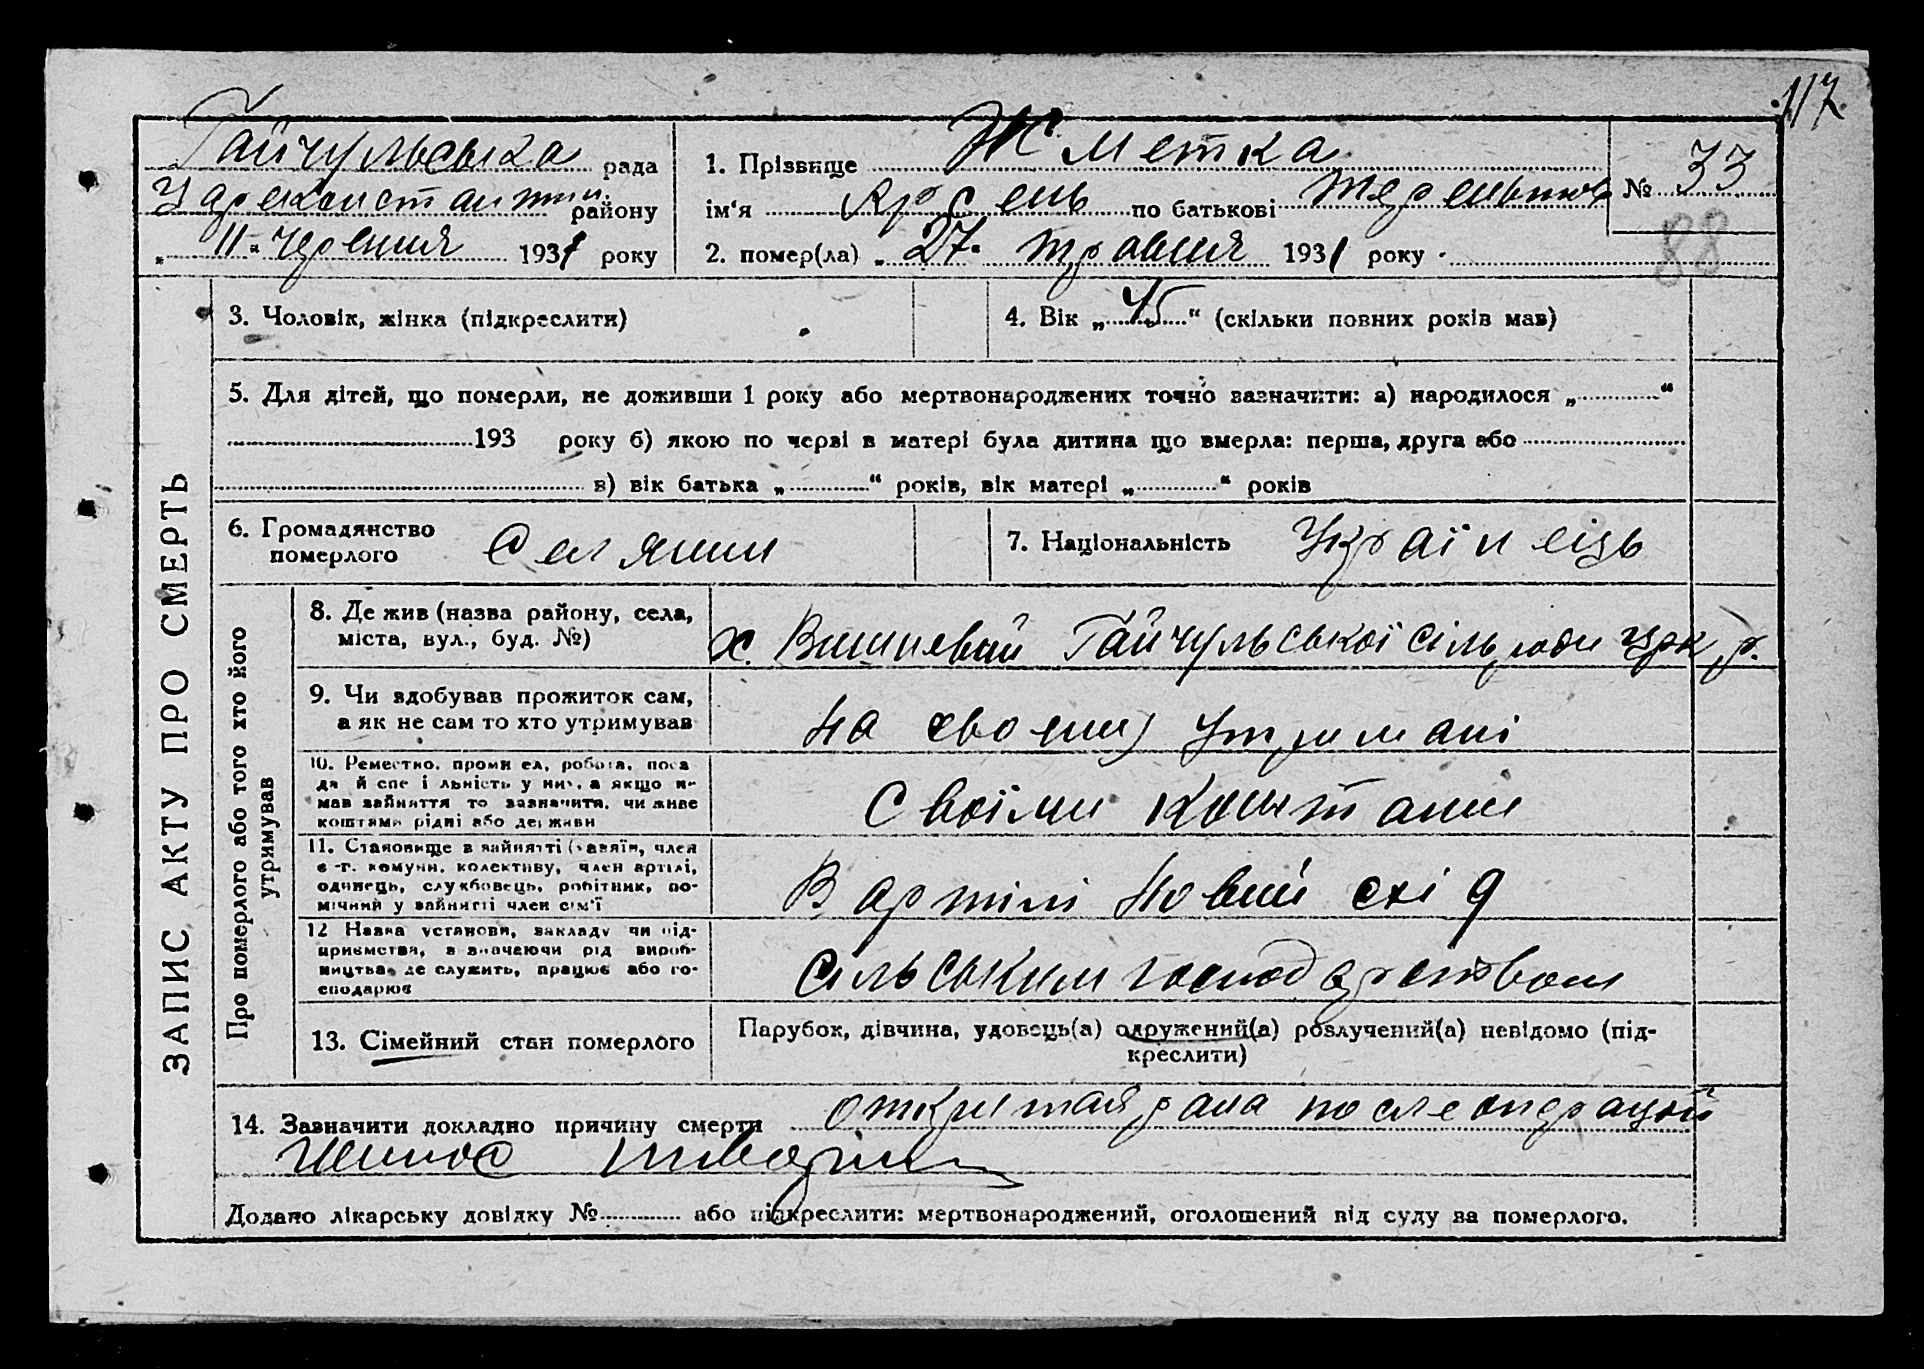 117
Гайчульська рада
1. Прізвище Жметка
№ 33
Царекостантин. району
ім‘я Арсень по батькові Терентьов
88
„ 11 “ червня 1931 року
2. помер(ла) „ 27 “ травня 1931 року
ЗАПИС АКТУ ПРО СМЕРТЬ
3. Чоловік, жінка (підкреслити)
4. Вік „ 45 “ (скільки повних років мав)
5. Для дітей, що померли, не доживши 1 року або мертвонароджених точно зазначити: а) народилося „ “
193 року б) якою по черві в матері була дитина що вмерла: перша, друга або
в) вік батька „ “ років, вік матері „ “ років
6. Громадянство
померлого
Селянин
7. Національність Українець
Про померлого або того хто його
утримував
8. Де жив (назва району, села,
міста, вул., буд. №)
х. Вишневий Гайчульської сільради Црк. р.
9. Чи здобував прожиток сам,
а як не сам то хто утримував
На своему утримані
10. Ремество, проми ел, робота, поса
да й спе і льність у них, а якщо н-
мав зайняття то зазначити, чи живе
коштами рідні або держави
Своіми коштами
11. Становище в зайнятті (хазяїн, член
с.-г. комуни, колективу, член артілі,
одинець, службовець, робітник, по-
мічний у зайнятті член сім'ї
В артілі Новий схід
12 Назва установи, закладу чи під-
приємства, в значаючи рід вироб-
ництва де служить, працює або го-
сподарює
Сільським господарством
13. Сімейний стан померлого
Парубок, дівчина, удовець(а) одружений(а) розлучений(а) невідомо (під-
креслити)
14. Зазначити докладно причину смерти открытая рана после операций
Додано лікарську довідку № або підкреслити: мертвонароджений, оголошений від суду за померлого.